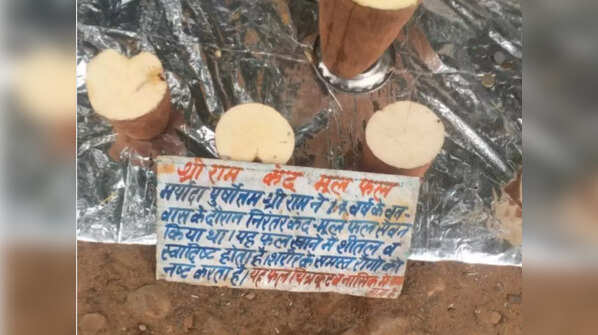 श्री राम कंद मूल फल
मर्यादा पुर्वोतम श्री राम ने 14 वर्ष के वन
वास के दौरान निरंतर कंद मूल फल सेवन
किया था। यह फल खाने में शीतल व
स्वादिष्ट होता है। शरीर के समस्त रोगों को
नष्ट करता है। यह फल चित्रकूट व नासिक में